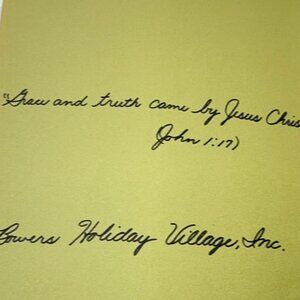 "Grace and truth came by Jesus Chris
(John 1:17)
Bowers Holiday Village, Inc.